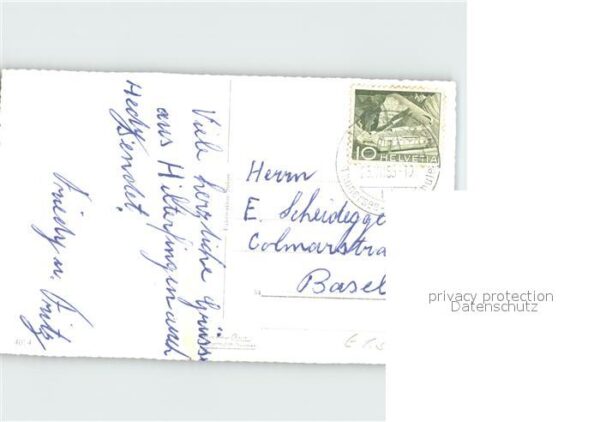 Viele herzliche Grüsse
aus Hilterfingen auch
Hedy
sendet
Friedy u. Fritz
10 HELVETIA
Herrn
E. Scheidegge
Colmarstra
Basel
4014
privacy protection
Datenschutz